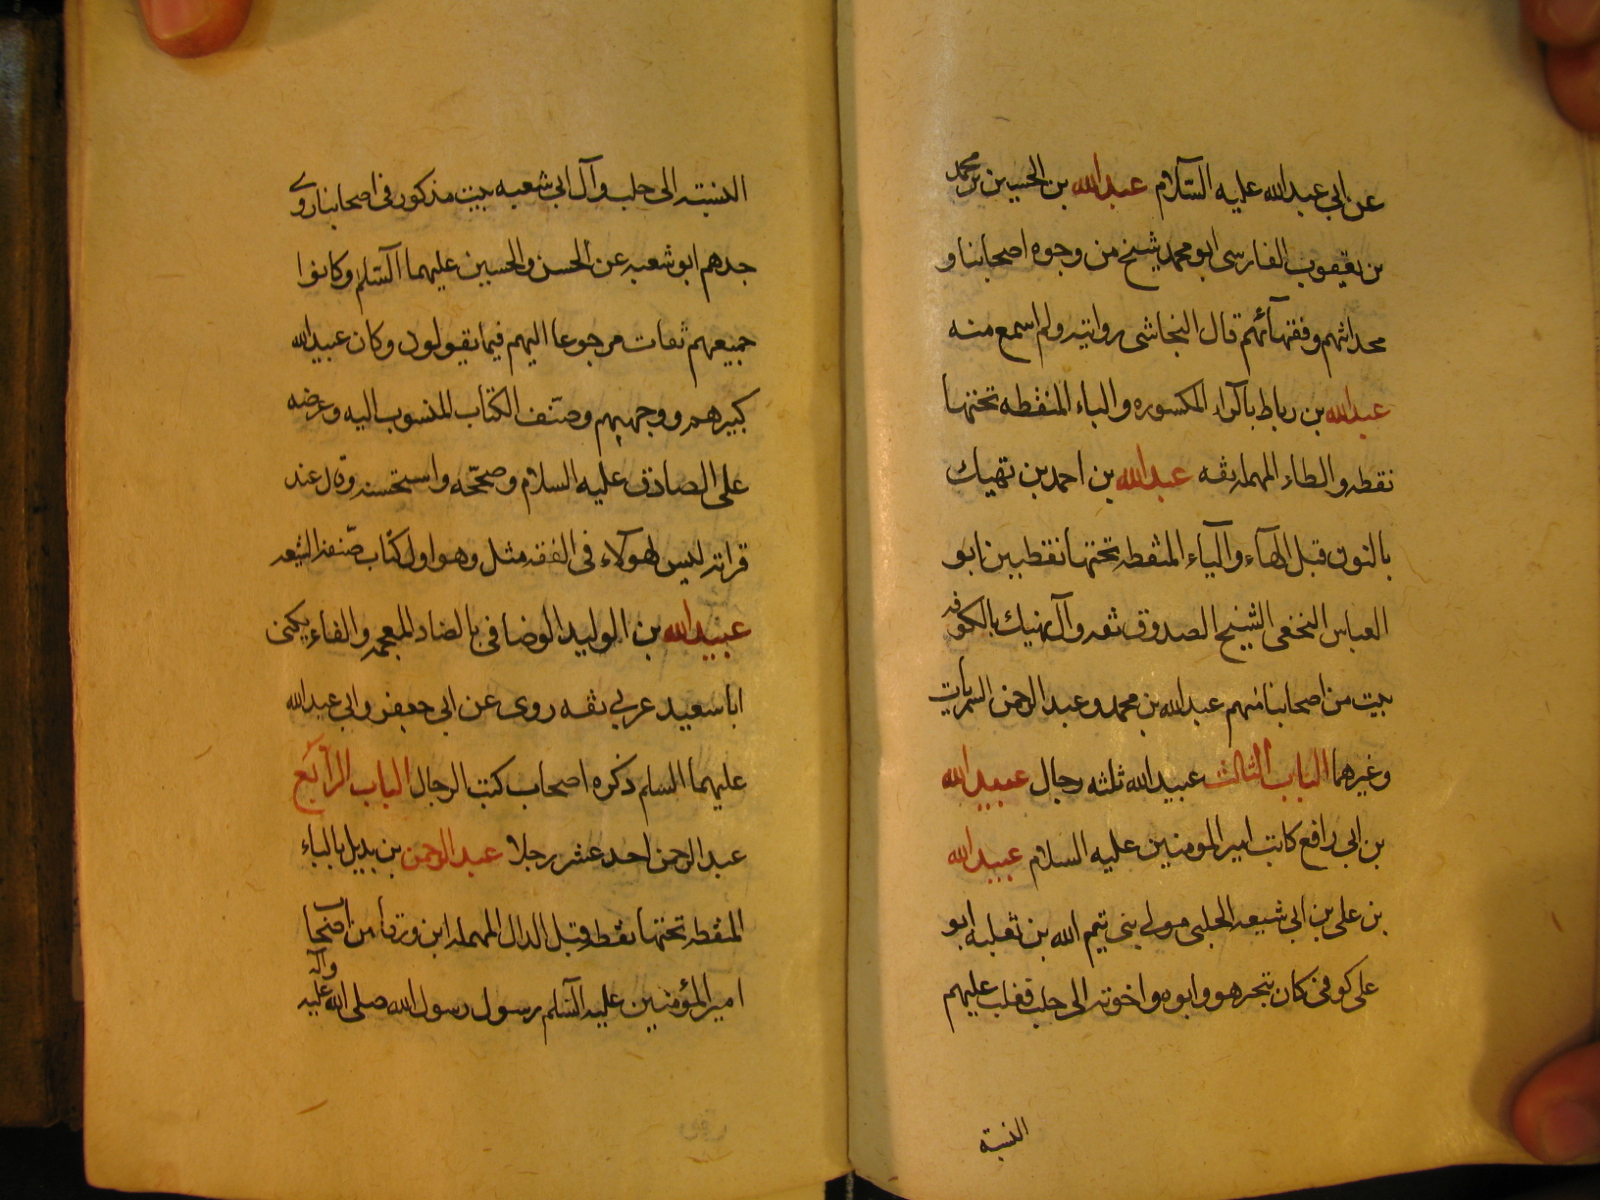 عن ابی عبدالله علیه السّلام عبدالله بن الحسین بن محمد
بن یعقوب الفارسی ابو محمد شیخ من وجوه اصحابنا و
محدثیهم وفقهآئهم قال النجاشی روایته ولم اسمع منه
عبدالله بن رباط بالرآء المکسوره والباء المنقطه تحتها
نقطه والطاء المهمله ثقه عبدالله بن احمد بن نهیك
بالنون قبل الهآء والیآء المنقطه تحتها نقطیین ابو
العباس النخعی الشیخ الصدوق ثقه وآل نهیك بالکوفه
بیت من اصحابنا منهم عبدالله بن محمد وعبد الرحمن السمریان
وغیرهما الباب الثالث عبیدالله ثلثه رجال عبیدالله
بن ابی رافع کاتب امیر المومنین علیه السلام عبیدالله
بن علی بن ابی شعبه الحلبی مولی بنی تیم الله بن ثعلبه ابو
علی کوفی کان تتجر هو وابوه واخوته الی حلب فغلب علیهم
النسبة
النسبته الی حلب وآل ابی شعبه بیت مذکور فی اصحابنا روی
جدهم ابو شعبه عن الحسن والحسین علیهما السّلم وکانوا
جمیعهم ثقات مرجوعا الیهم فیما یقولون وکان عبیدالله
کبیرهم ووجههم وصنف الکتاب المنسوب الیه وعرضه
علی الصادق علیه السلام وصحّحه واستحسنه وقال عند
قراته لیس لهولاء فی الفقه مثله وهو اول کتاب صّنفه الشیعه
عبیدالله بن الولید الوضافی بالضاد المعجمه والفاء یکنی
ابا سعید عربی ثقه روی عن ابی جعفر وابی عبدالله
علیهما السلم ذکره اصحاب کتب الرجال الباب الرّابع
عبد الرحمن احد عشر رجلا عبد الرحمن بن بدیل بالباء
المنقطه تحتها نقطه وقبل الدال المهمله ابن ورقا من اصحاب
امیر المؤمنین علیه السّلم رسول رسول الله صلی الله علیه وآله